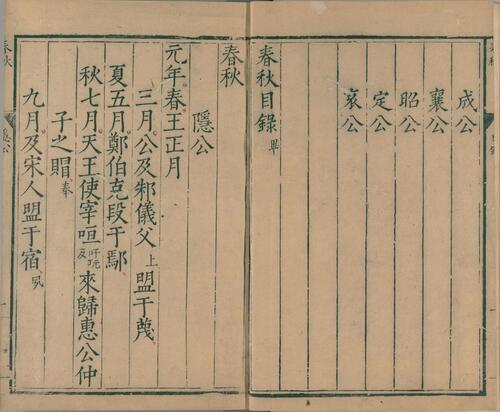 成公
襄公
昭公
定公
哀公
春秋目錄 畢
春秋
隱公
元年春王正月
三月公及邾儀父上盟于蔑
夏五月鄭伯克段于鄢
秋七月天王使宰咺吁阮反來歸惠公仲
子之賵奉
九月及宋人盟于宿夙
春秋 隱公